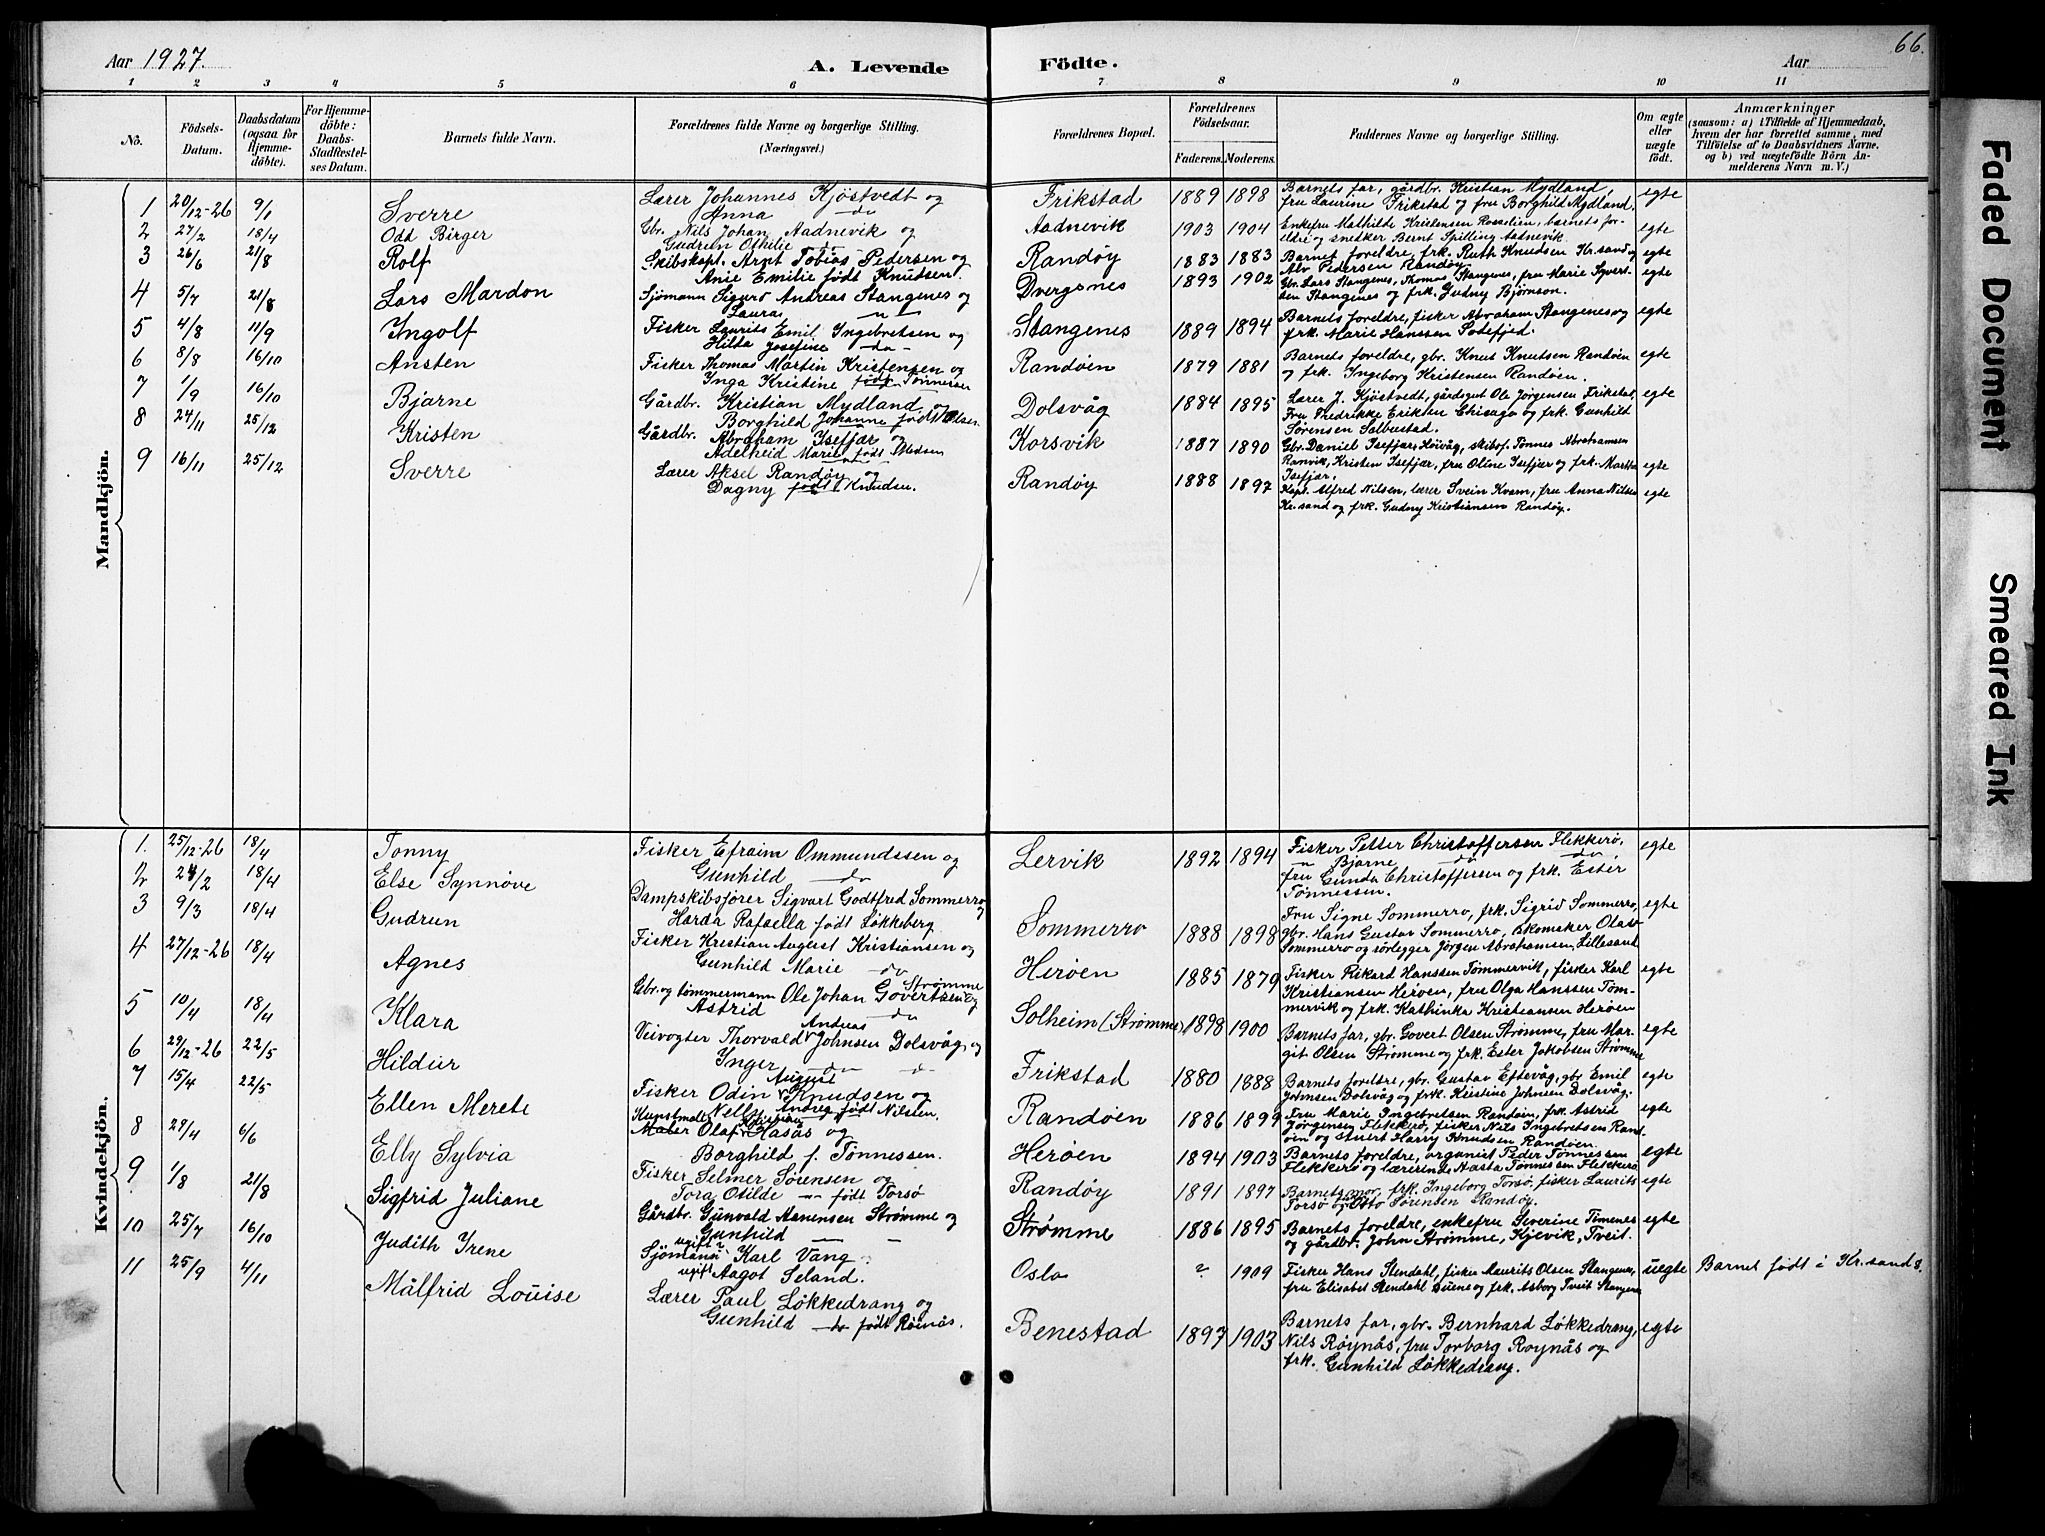 66.
Aar 1927. A. Levende Födte. Aar
1 2 3 4 5 6 7 8 9 10 11
No.
Födsels-
Datum.
Daabsdatum
(ogsaa för
Hjemme-
döbte).
For Hjemme-
döbte:
Daabs-
Stadfestel-
ses Datum.
Barnets fulde Navn.
Forældrenes fulde Navne og borgerlige Stilling.
(Næringsvei.)
Forældrenes Bopæl.
Forældrenes
Födselsaar.
Faderens. Moderens.
Faddernes Navne og borgerlige Stilling.
Om ægte
eller
uægte
födt.
Anmærkninger
(saasom: a) i Tilfælde af Hjemmedaab,
hvem der har forrettet samme, med
Tilföielse af to Daabsvidners Navne,
og b) ved uægtefödte Börn An-
melderens Navn m. V.)
Mandkjön.
1 20/12-26 9/1 Sverre
Lærer Johannes Kjøstvedt og
Anna do
Frikstad 1889 1898
Barnets far, gårdbr. Kristian Mydland,
fru Laurine Frikstad og fru Borghild Mydland.
egte
2 27/2 18/4 Odd Birger
Gbr. Nils Johan Aadnevik og
Gudrun Othilie do
Aadnevik 1903 1904
Enkefru Mathilde Kristensen Rosselien, barnets for-
eldre og snedker Bernt Spilling Aadnevik.
egte
3 26/6 21/8 Rolf
Skibskapt. Arnt Tobias Pedersen og
Anie Emilie født Knudsen.
Randøy 1883 1883
Barnets foreldre, frk. Ruth Knudsen Kr.sand og
Alv Pedersen Randøy
egte
4 5/7 21/8 Lars Mardon
Sjömann Sigurd Andreas Stangenes og
Laura
Dvergsnes 1893 1902
Gbr. Lars Stangenes, Thomas Stangenes, fru Marie Syvert-
sen Stangenes og frk. Gudny Bjørnson.
egte
5 4/8 11/9 Ingolf
Fisker Laurits Emil Ingebretsen og
Hilda Josefine do
Stangenes 1889 1894
Barnets foreldre, fisker Abraham Stangenes og
frk. Marie Hanssen Sodefjed.
egte
6 8/8 16/10 Ansten
Fisker Thomas Martin Kristensen og
Inga Kristine født Tønnessen
Randøen 1879 1881
Barnets foreldre, gbr. Knut Knutsen Randøen
og frk. Ingeborg Kristensen Randøen.
egte
7 1/9 16/10 Bjarne
Gårdbr. Kristian Mydland og
Borghild Johanne født Olsen
Dolsvåg 1884 1895
Lærer J. Kjøstvedt, gårdsgut Ole Jørgensen Frikstad,
Fru Fredrikke Eriksen Chicago og frk. Gunhilt
Sørensen Salbustad.
egte
8 24/11 25/12 Kristen
Gårdbr. Abraham Isefjær og
Adelheid Marie født Madsen
Korsvik 1887 1890
Gbr. Daniel Isefjær, Høivåg, skibsf. Tønnes Abrahamsen
Ranvik, Kristen Isefjær, fru Oline Isefjær og frk. Martha
Isefjær.
egte
9 16/11 25/12 Sverre
Lærer Aksel Randøy og
Dagny født Knudsen.
Randøy 1888 1897
Kapt. Alfred Nilsen, lærer Svein Kvam, fru Anna Nilsen
Kr.sand og frk. Gudny Kristiansen Randøy.
egte
Kvindekjön.
1. 25/12-26 18/4 Tonny
Fisker Efraim Ommundssen og
Gunhild do
Lervik 1892 1894
Fisker Petter Christoffersen Flekkerø,
" Bjarne do do
fru Gunda Christoffersen og frk. Ester
Tønnessen.
egte
2 28/2 18/4 Else Synnøve
Dampskibsfører Sigvart Godtfred Sommerro og
Harda Rafaella født Løkkeberg
Sommerro 1888 1898
Fru Signe Sommerro, frk. Sigrid Sommerro,
gbr. Hans Gustav Sommerro, skomaker Olav
Sommerro og rørlegger Jørgen Abrahamsen, Lillesand
egte
3 9/3 18/4 Gudrun
Fisker Kristian August Kristiansen og
Gunhild Marie do
Herøen 1885 1879
Fisker Rikard Hanssen Tømmervik, fisker Karl
Kristiansen Herøen, fru Olga Hanssen Tøm-
mervik og frk. Kathinka Kristiansen Herøen
egte
4 27/12-26 18/4 Agnes
Gbr. og tømmermann Ole Johan Govertsen Strømme og
Astrid do
Solheim (Strømme) 1898 1900
Barnets far, gbr. Govert Olsen Strømme, fru Mar-
git Olsen Strømme og frk. Ester Jakobsen Strømme
egte
5 10/4 18/4 Klara
Veivogter Thorvald Andreas Johnsen Dolsvåg og
Inger do
Frikstad 1880 1888
Barnets foreldre, gbr. Gustav Eftevåg, gbr. Emil
Johnsen Dolsvåg og frk. Kristine Johnsen Dolsvåg.
egte
6 29/12-26 22/5 Hildur
Fisker Odin August Knudsen og
Nelly Andrea født Nilsen.
Randøen 1886 1899
Fru Marie Ingebretsen Randøen, frk. Astrid
Jørgensen Flekkerø, fisker Nils Ingebretsen Rand-
øen og stuert Harry Knudsen Randøen.
egte
7 15/4 22/5 Ellen Merete
Kunstmaler Olaf Hasås og
Borghild f. Tønnessen.
Herøen 1894 1903
Barnets foreldre, organist Peder Tønnessen
Flekkerø og lærerinde Aasta Tønnessen Flekkerø
egte
8 28/4 6/6 Elly Sylvia
Fisker Selmer Sørensen og
Tora Otilde født Torsø
Randøy 1891 1897
Barnets mor, frk. Ingeborg Torsø, fisker Laurits
Torsø og Otto Sørensen Randøy.
egte
9 1/8 21/8 Sigfrid Juliane
Gårdbr. Gunvald Manensen Strømme og
Gunhild
Strømme 1886 1895
Barnets foreldre, enkefru Severine Timenes
og gårdbr. John Strømme, Kjevik, Tveit.
egte
10 25/7 16/10 Judith Irene
ugift?
Sjömand Karl Vang.
ugift Aagot Seland.
Oslo ? 1909
Fisker Hans Stendahl, fisker Maurits Olsen Stangenes,
fru Elisabet Stendahl Buene og frk. Asborg Tveit Stangenes
uegte Barnet født i Kr.sand S.
11 25/9 4/11 Målfrid Louise
Lærer Paul Løkkedrang og
Gunhild do født Røinås.
Benestad 1897 1903
Barnets far, gbr. Bernhard Løkkedrang,
Nils Røynås, fru Torborg Røynås og
frk. Gunhild Løkkedrang.
egte
Faded Document
Smeared Ink